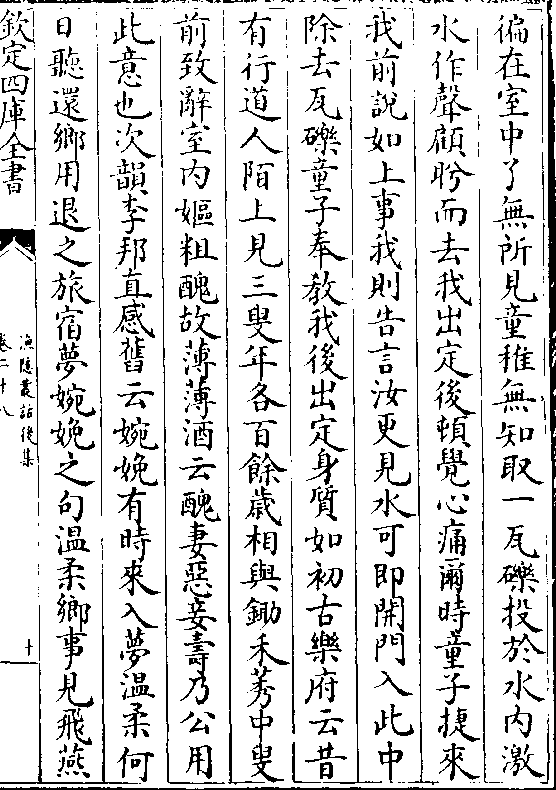 徧在室中了無所見童稚無知取一瓦礫投於水内激
水作聲顧盻而去我出定後頓覺心痛爾時童子捷來
我前說如上事我則告言汝更見水可即開門入此中
除去瓦礫童子奉教我後出定身質如初古樂府云昔
有行道人陌上見三叟年各百餘歳相與鋤禾莠中叟
前致辭室内嫗粗醜故薄薄酒云醜妻惡妾夀乃公用
此意也次韻李邦直感舊云婉娩有時來入夢温柔何
日聽還鄉用退之旅宿夢婉娩之句温柔鄉事見飛燕
欽定四庫全書
漁隠叢話後集
卷二十八
十